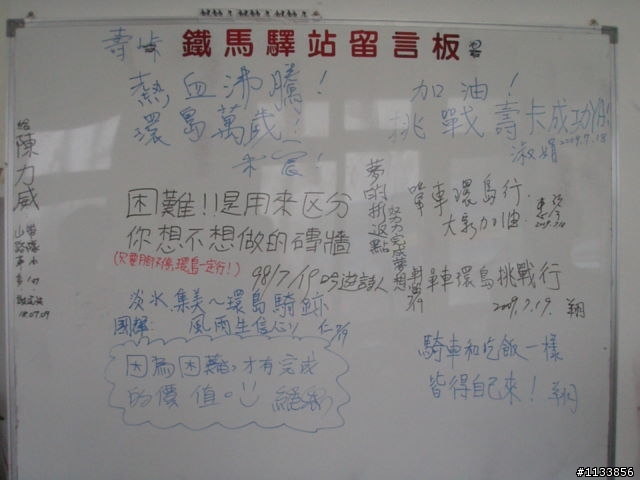 鐵馬驛站留言板
壽峠
熱血沸騰!
環島萬歲!
加油!
挑戰壽卡成功
淑娟 2009.7.18
給
陳力威
困難!!是用來区分
你想不想做的磚牆
98/7/19
夢的折返點
努力完成夢想
單車環島行
大家加油
單車環島挑戰行
2009.7.19. 翔
淡水集美~環島騎跡
風雨生信心
因為困難,才有完成
的價值。
騎車和吃飯一樣
皆得自己來! 翔
#1133856